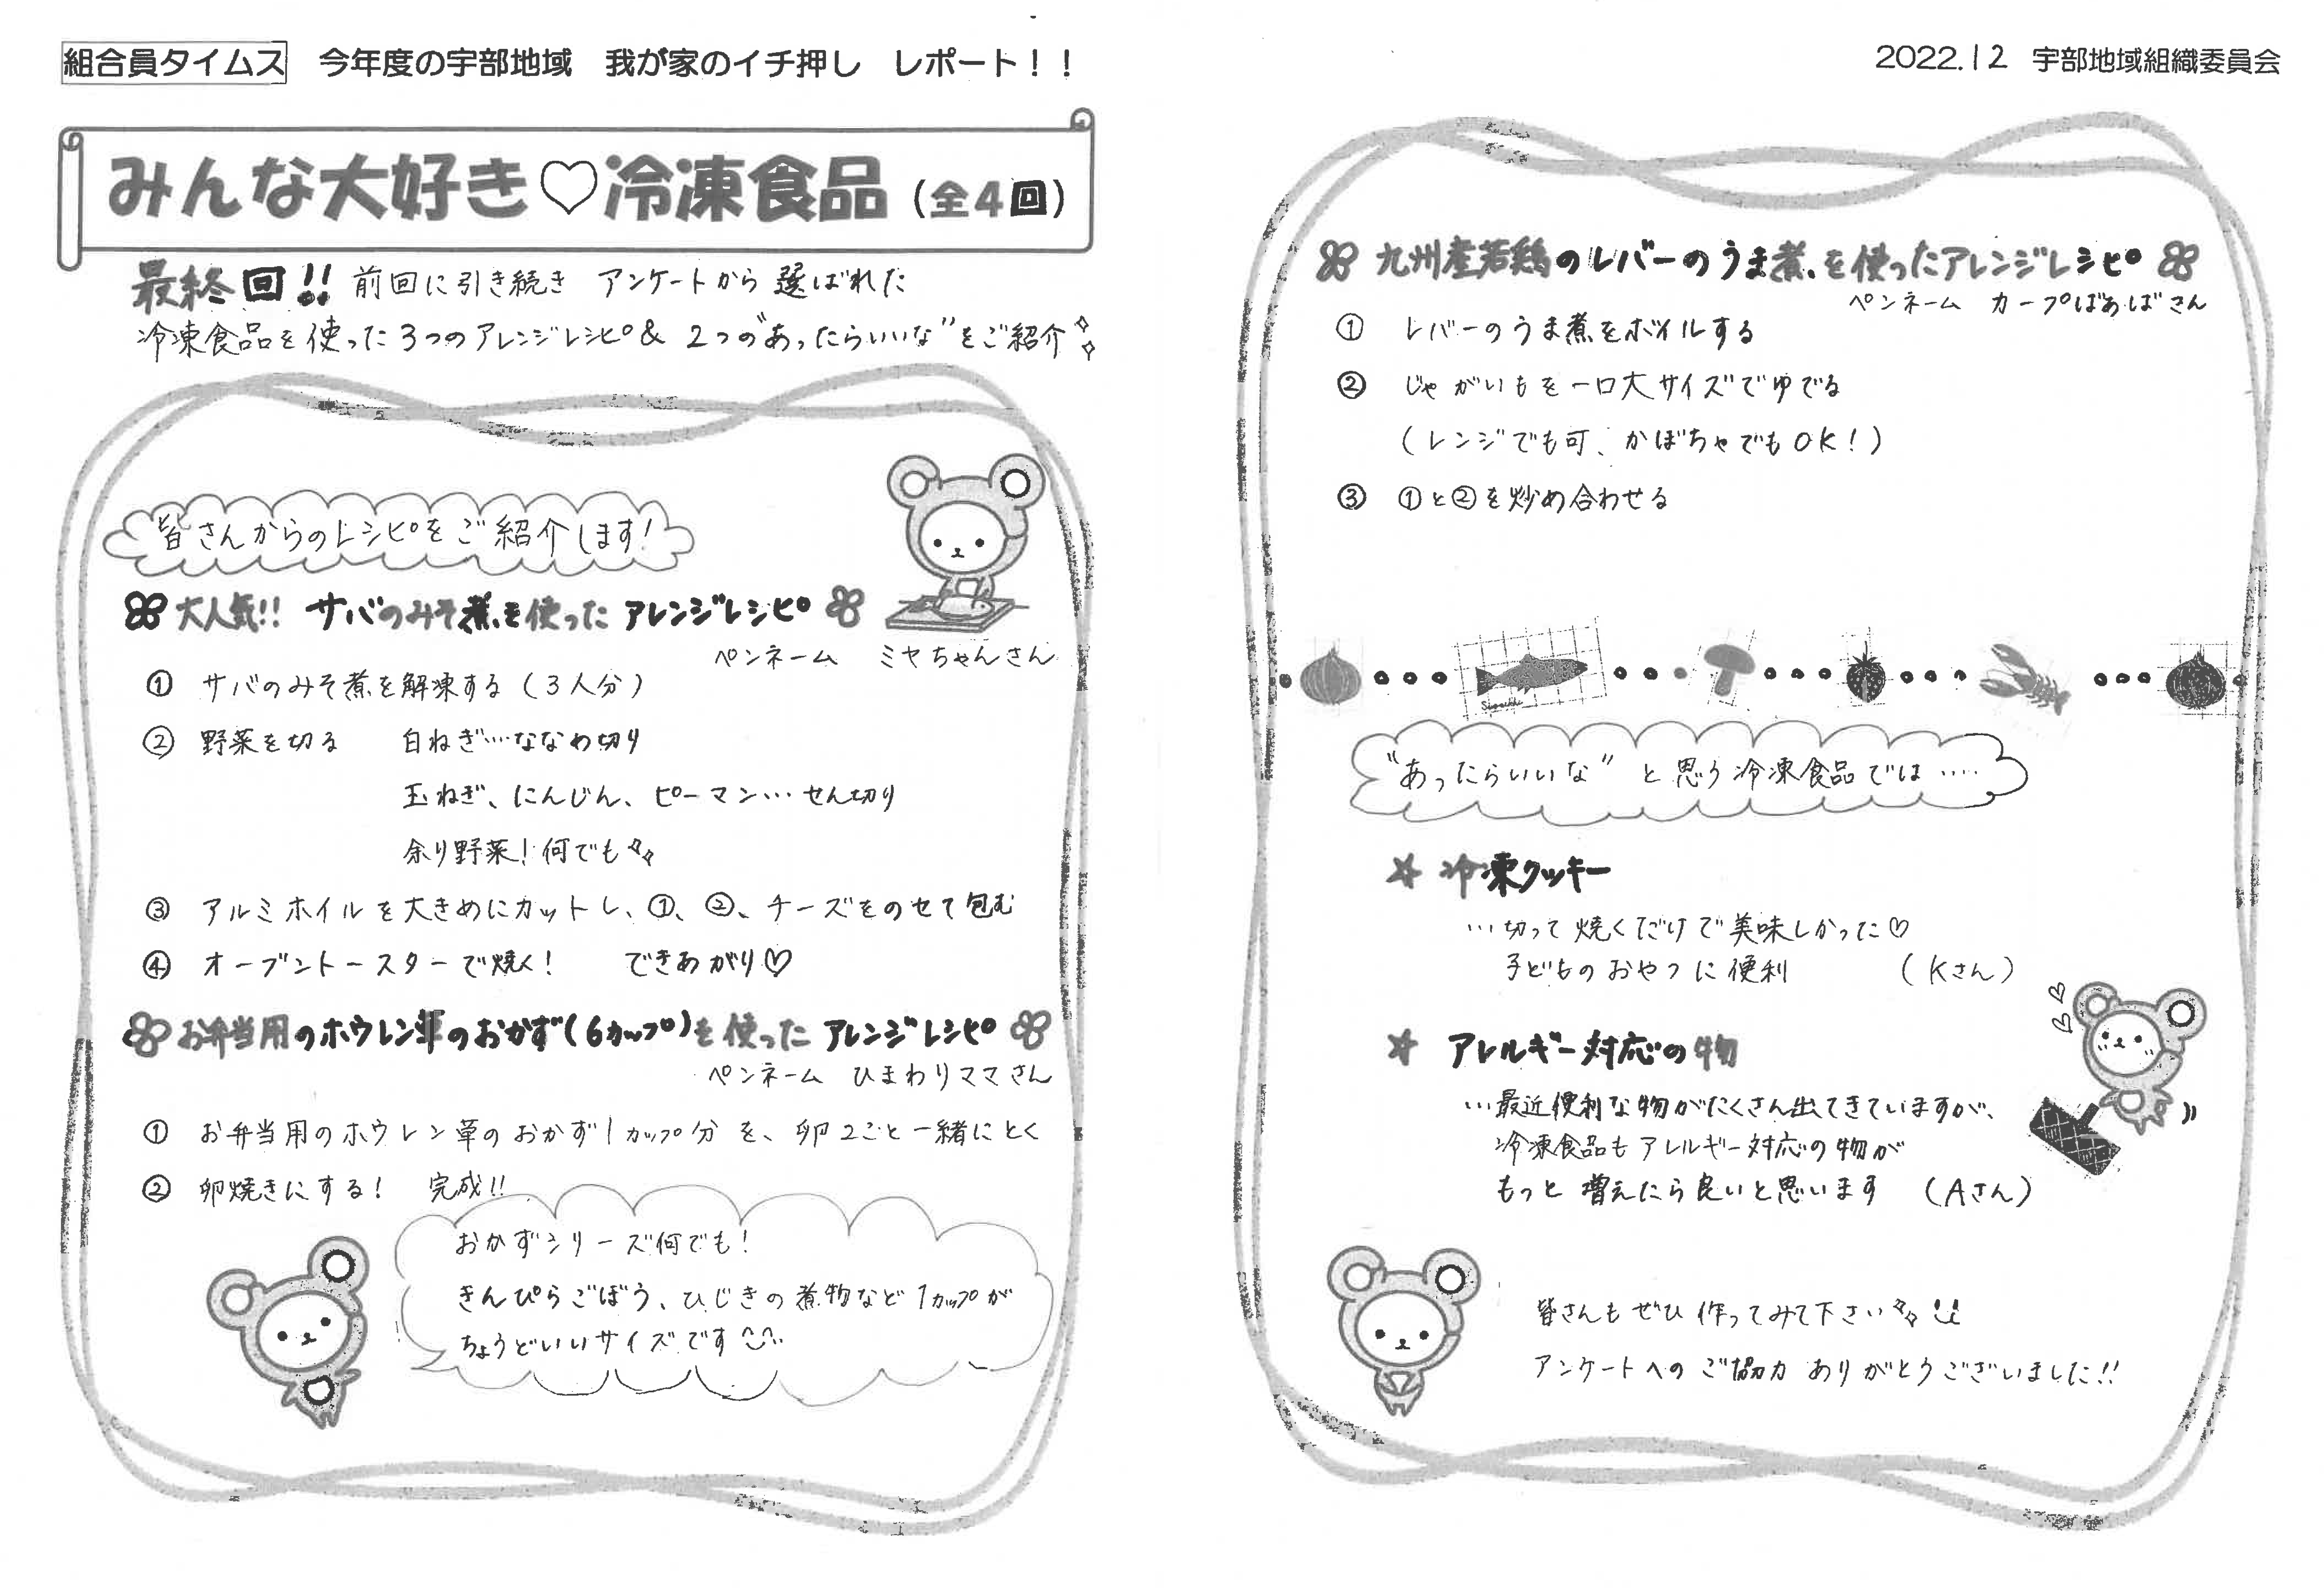 組合員タイムス 今年度の宇部地域 我が家のイチ押し レポート！！
2022.12 宇部地域組織委員会
みんな大好き♡冷凍食品（全4回）
最終回!! 前回に引き続き アンケートから選ばれた
冷凍食品を使った3つのアレンジレシピ& 2つの"あったらいいな"をご紹介
皆さんからのレシピをご紹介します!
大人気!! サバのみそ煮を使ったアレンジレシピ
ペンネーム ミヤちゃんさん
① サバのみそ煮を解凍する（3人分）
② 野菜を切る 白ねぎ…ななめ切り
玉ねぎ、にんじん、ピーマン…せん切り
余り野菜!何でも
③ アルミホイルを大きめにカットし、①、②、チーズをのせて包む
④ オーブントースターで焼く! できあがり♡
お弁当用のホウレン草のおかず(6カップ)を使ったアレンジレシピ
ペンネーム ひまわりママさん
① お弁当用のホウレン草のおかず1カップ分を、卵2こと一緒にとく
② 卵焼きにする! 完成!!
おかずシリーズ何でも!
きんぴらごぼう、ひじきの煮物など1カップが
ちょうどいいサイズです
九州産若鶏のレバーのうま煮を使ったアレンジレシピ
ペンネーム カープばあばさん
① レバーのうま煮をボイルする
② じゃがいもを一口大サイズでゆでる
（レンジでも可、かぼちゃでもOK!）
③ ①と②を炒め合わせる
"あったらいいな"と思う冷凍食品では……
☆ 冷凍クッキー
…切って焼くだけで美味しかった♡
子どものおやつに便利 （Kさん）
☆ アレルギー対応の物
…最近便利な物がたくさん出てきていますが、
冷凍食品もアレルギー対応の物が
もっと増えたら良いと思います （Aさん）
皆さんもぜひ作ってみて下さい
アンケートへのご協力ありがとうございました!!